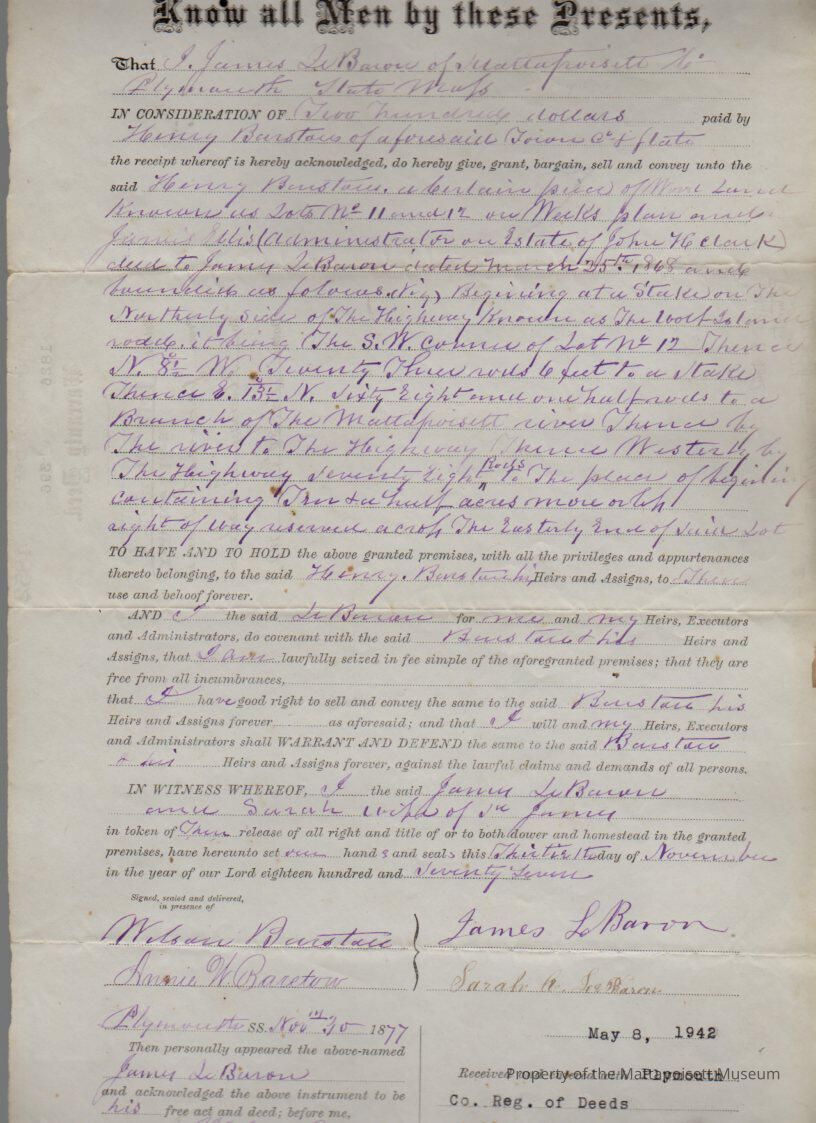 Know all Men by these Presents,
That I, James LeBaron of Mattapoisett Co
Plymouth State Mass
IN CONSIDERATION OF Two hundred dollars paid by
Henry Barstow of aforesaid Town Co & State
the receipt whereof is hereby acknowledged, do hereby give, grant, bargain, sell and convey unto the
said Henry Barstow. a Certain piece of Wood Land
Known as Lots No 11 and 12 on Weeks plan and
James Ellis (Administrator on Estate of John H Clark)
deed to James LeBaron dated March 25th 1868 and
bounded as folows. Viz, Begining at a Stake on The
Northerly Side of The Highway Known as The Wolf Island
rode. it being The S.W. Corner of Lot No 12 Thence
N. 8½ W. Seventy Three rods 6 feet to a Stake
Thence E. 13½ N. Sixty Eight and one half rods to a
Branch of The Mattapoisett river Thence by
The river to The Highway Thence Westerly by
The Highway Seventy Eight Rods to The place of begining
containing Ten & a half acres more or less
right of way reserved across The Easterly End of said Lot
TO HAVE AND TO HOLD the above granted premises, with all the privileges and appurtenances
thereto belonging, to the said Henry. Barstow his Heirs and Assigns, to Their
use and behoof forever.
AND I the said LeBaron for me and my Heirs, Executors
and Administrators, do covenant with the said Barstow & his Heirs and
Assigns, that I am lawfully seized in fee simple of the aforegranted premises; that they are
free from all incumbrances,
that I have good right to sell and convey the same to the said Barstow his
Heirs and Assigns forever as aforesaid; and that I will and my Heirs, Executors
and Administrators shall WARRANT AND DEFEND the same to the said Barstow
& his Heirs and Assigns forever, against the lawful claims and demands of all persons.
IN WITNESS WHEREOF, I the said James LeBaron
and Sarah wife of sd James
in token of Their release of all right and title of or to both dower and homestead in the granted
premises, have hereunto set our hands and seals this Thirtieth day of November
in the year of our Lord eighteen hundred and Seventy Seven
Signed, sealed and delivered,
in presence of
Wilson Barstow
Annie W Barstow
James LeBaron.
Sarah A. LeBaron
Plymouth SS. Nov 30 1877
Then personally appeared the above-named
James LeBaron
and acknowledged the above instrument to be
his free act and deed; before me,
May 8, 1942
Received Plymouth
Property of the Mattapoisett Museum
Co. Reg. of Deeds